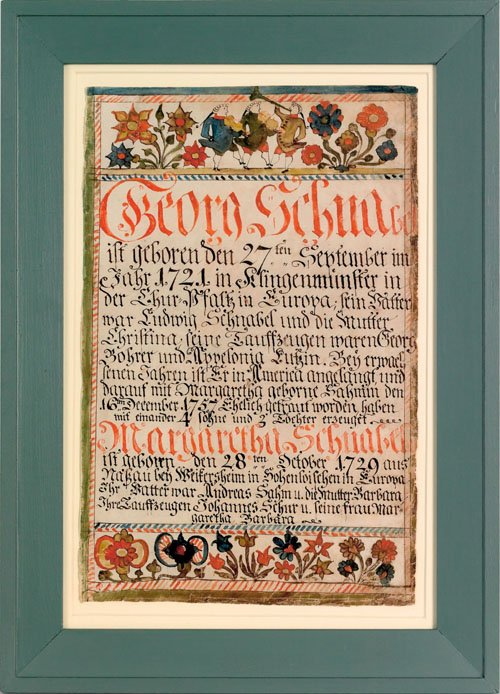 Georg Schnabel
ist geboren den 27ten September im
Jahr 1721 in Klingenmünster in
der Chur-Pfaltz in Europa, sein Vatter
war Ludwig Schnabel und die Mutter
Christina, seine Tauffzeugen waren Georg
Bohrer und Appelonia Bey erwac
senen Jahren ist Er in America angelangt und
darauf mit Margaretha geborne Sahmin den
16ten December 1757 Ehelich getraut worden, haben
mit einander 4 Söhne und 3 Töchter erzeuget
Margaretha Schnabel
ist geborn den 28ten October 1729 aus
Naßau bey Weikersheim in Hohenloischen in Europa
Ihr Vatter war Andreas Sahm u. die Mutter Barbara
Ihre Tauffzeugen Johannes Schur u. seine frau Mar-
garetha Barbara